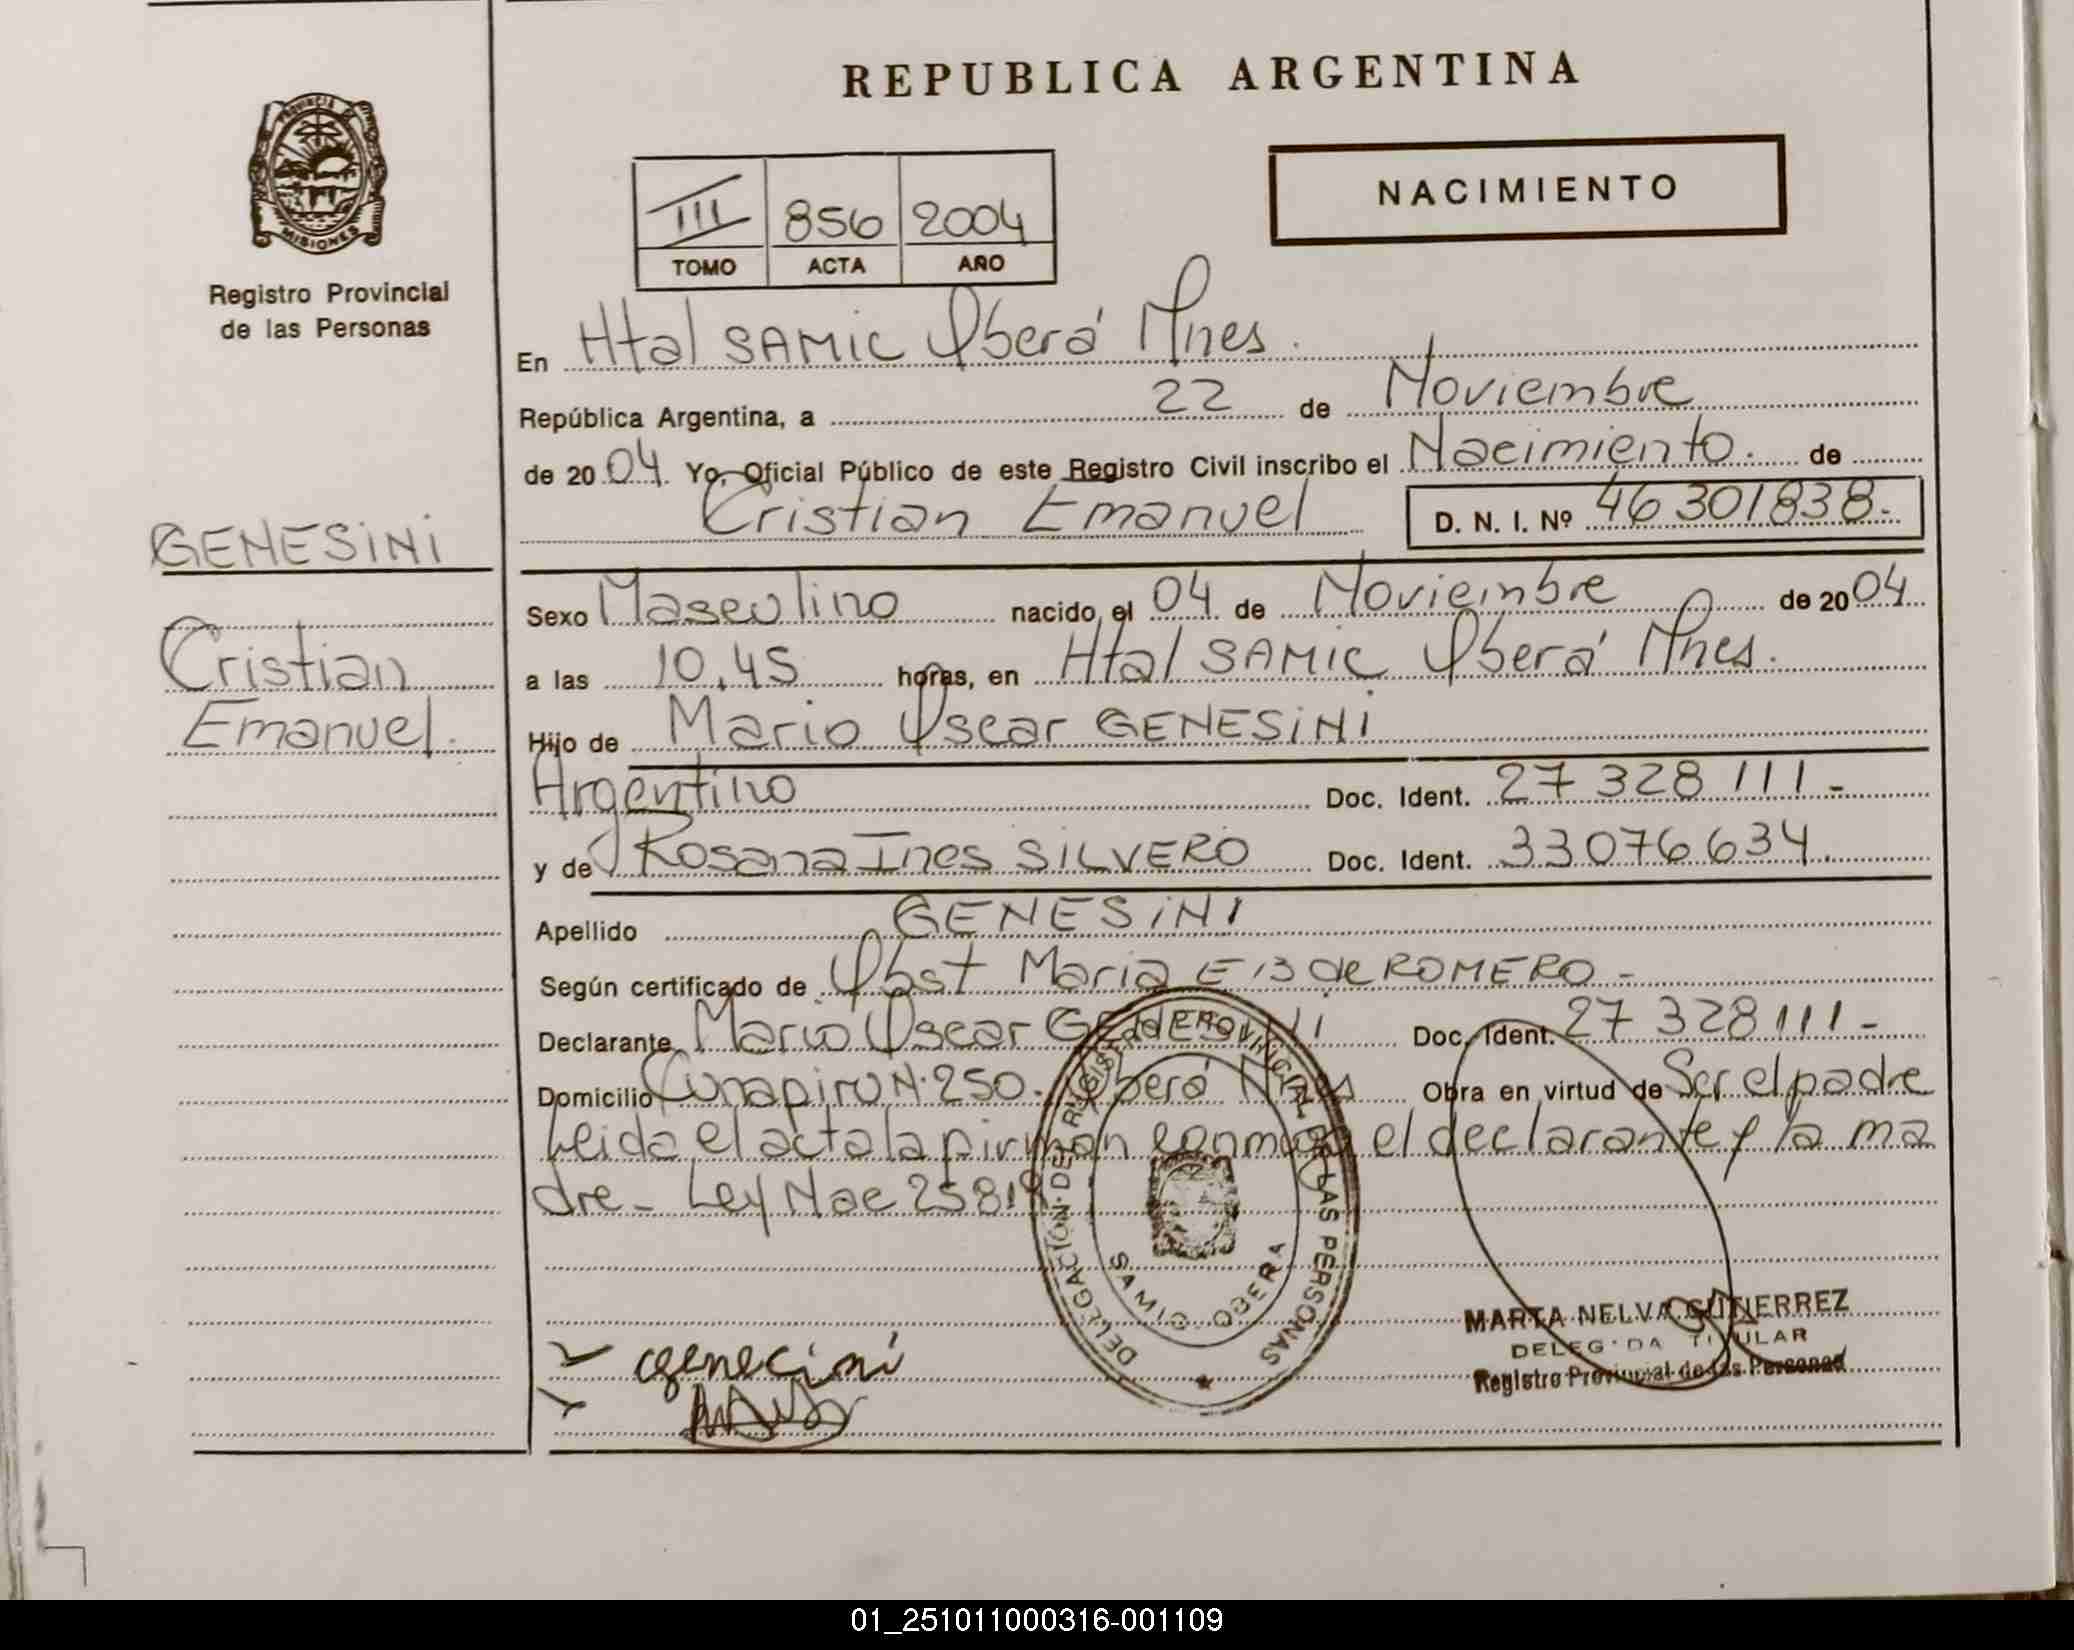 REPUBLICA ARGENTINA
PROVINCIA
MISIONES
Registro Provincial
de las Personas
NACIMIENTO
III 856 2004
TOMO ACTA AÑO
En Htal SAMIC Oberá Mnes.
República Argentina, a 22 de Noviembre
de 2004. Yo, Oficial Público de este Registro Civil inscribo el Nacimiento. de
Cristian Emanuel D. N. I. Nº 46 301838.-
GENESiNi
Cristian
Emanuel.
Sexo Masculino nacido el 04 de Noviembre de 2004
a las 10,45 horas, en Htal SAMIC Oberá Mnes.
Hijo de Mario Oscar GENESiNi
Argentino Doc. Ident. 27 328 111-
y de Rosana Ines SILVERO Doc. Ident. 33076634.
Apellido GENESiNi
Según certificado de Obst Maria E B de ROMERO-
Declarante Mario Oscar Doc. Ident. 27 328 111-
Domicilio Cuñapiru N° 250. Oberá Obra en virtud de Ser el padre
Leida el acta la firman conmigo el declarante y la ma
dre- Ley Nac 25819
DELEGACIÓN DEL REGISTRO PROVINCIAL DE LAS PERSONAS
SAMIC OBERA
genecini
MARTA NELVA GUTIERREZ
DELEGADA TITULAR
Registro Provincial de las Personas
01_251011000316-001109